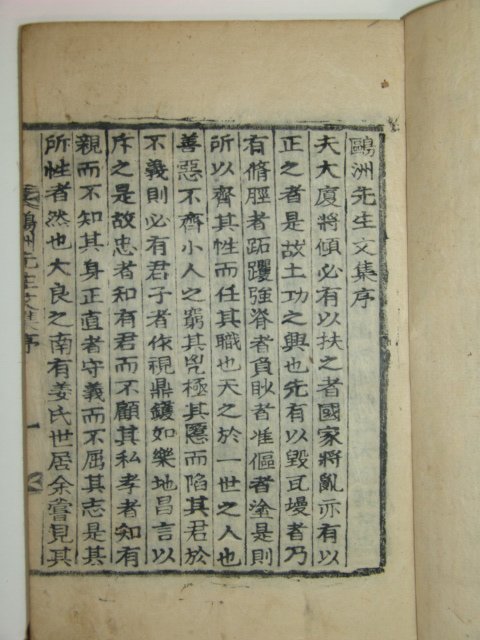 鷗洲先生文集序
夫大廈將傾必有以扶之者國家將亂亦有以
正之者是故土功之興也先有以毁瓦墁者乃
有脩脛者跖钁強脊者負眇者准傴者塗是則
所以齊其性而任其職也天之於一世之人也
善惡不齊小人之窮其兇極其慝而陷其君於
不義則必有君子者依視鼎鑊如樂地昌言以
斥之是故忠者知有君而不顧其私孝者知有
親而不知其身正直者守義而不屈其志是其
所性者然也大良之南有姜氏世居余嘗見其
鷗洲先生文集序 一